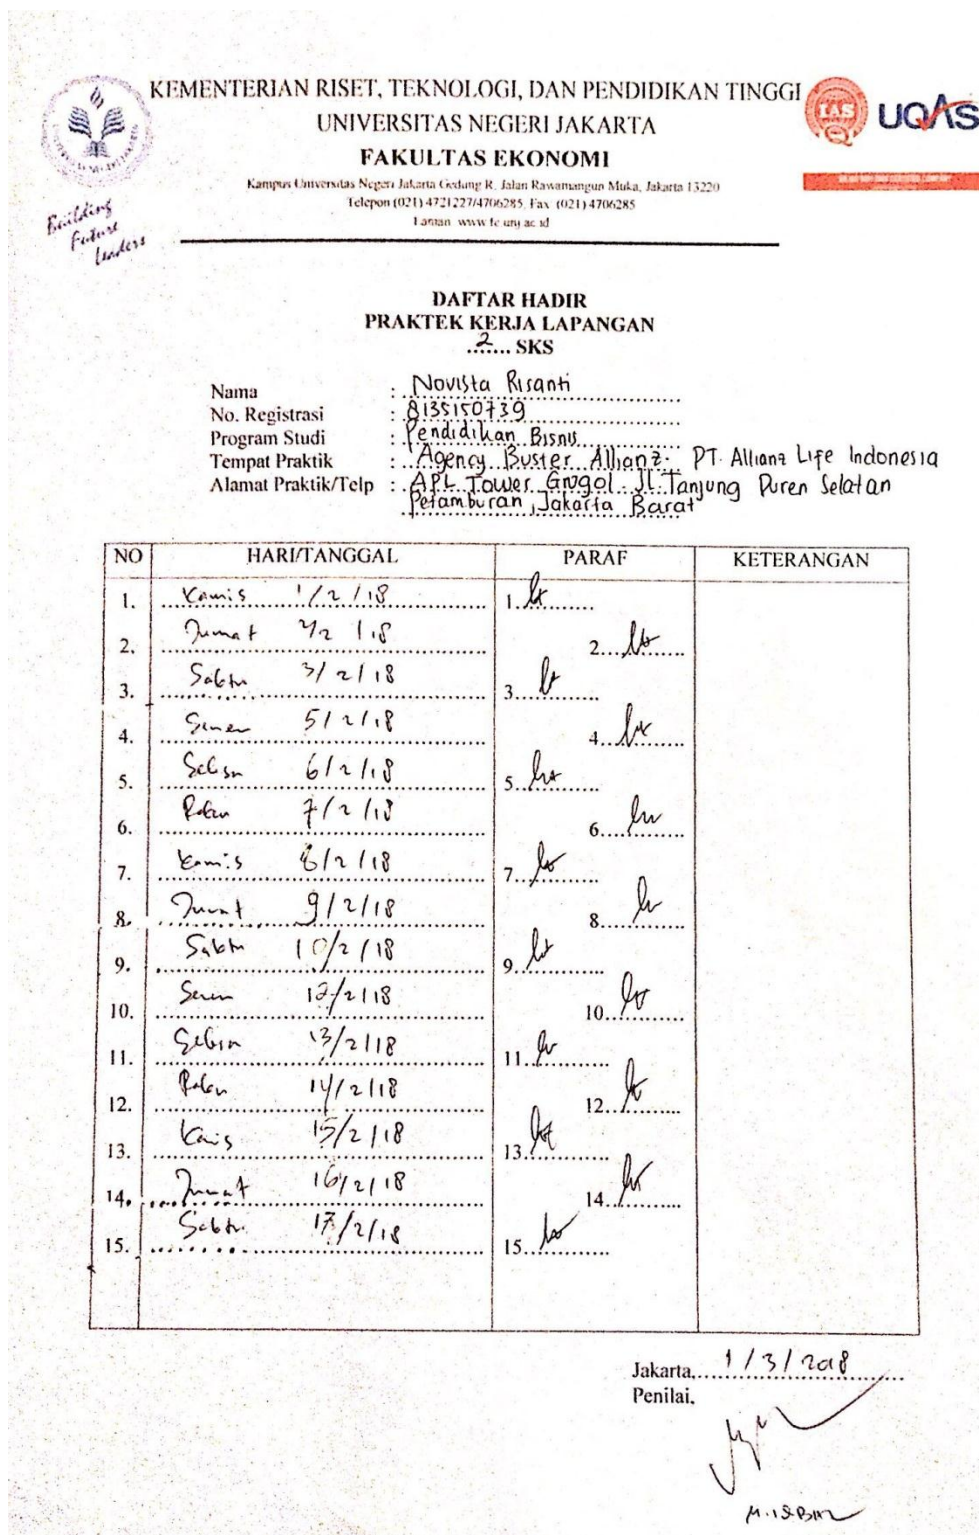 KEMENTERIAN RISET, TEKNOLOGI, DAN PENDIDIKAN TINGGI
UNIVERSITAS NEGERI JAKARTA
FAKULTAS EKONOMI
Kampus Universitas Negeri Jakarta Gedung R, Jalan Rawamangun Muka, Jakarta 13220
Telepon (021) 4721227/4706285, Fax. (021) 4706285
Laman www.fe.unj.ac.id
IAS
UQAS
Building
Future
Leaders
DAFTAR HADIR
PRAKTEK KERJA LAPANGAN
2 SKS
Nama : Novista Risanti
No. Registrasi : 8135150739
Program Studi : Pendidikan Bisnis
Tempat Praktik : Agency Buster Allianz. PT. Allianz Life Indonesia
Alamat Praktik/Telp : APL Tower Grogol. Jl. Tanjung Duren Selatan
Petamburan, Jakarta Barat
NO HARI/TANGGAL PARAF KETERANGAN
1. Kamis 1/2/18 1.
2. Jumat 2/2/18 2.
3. Sabtu 3/2/18 3.
4. Senen 5/2/18 4.
5. Selasa 6/2/18 5.
6. Rabu 7/2/18 6.
7. Kamis 8/2/18 7.
8. Jumat 9/2/18 8.
9. Sabtu 10/2/18 9.
10. Senen 12/2/18 10.
11. Selasa 13/2/18 11.
12. Rabu 14/2/18 12.
13. Kamis 15/2/18 13.
14. Jumat 16/2/18 14.
15. Sabtu 17/2/18 15.
Jakarta, 1/3/2018
Penilai,